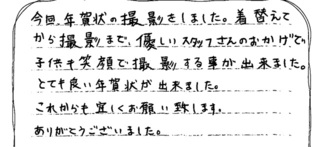 今回、年賀状の撮影をしました。着替えて
から撮影まで、優しいスタッフさんのおかげで
子供も笑顔で撮影する事が出来ました。
とても良い年賀状が出来ました。
これからも宜しくお願い致します。
ありがとうございました。